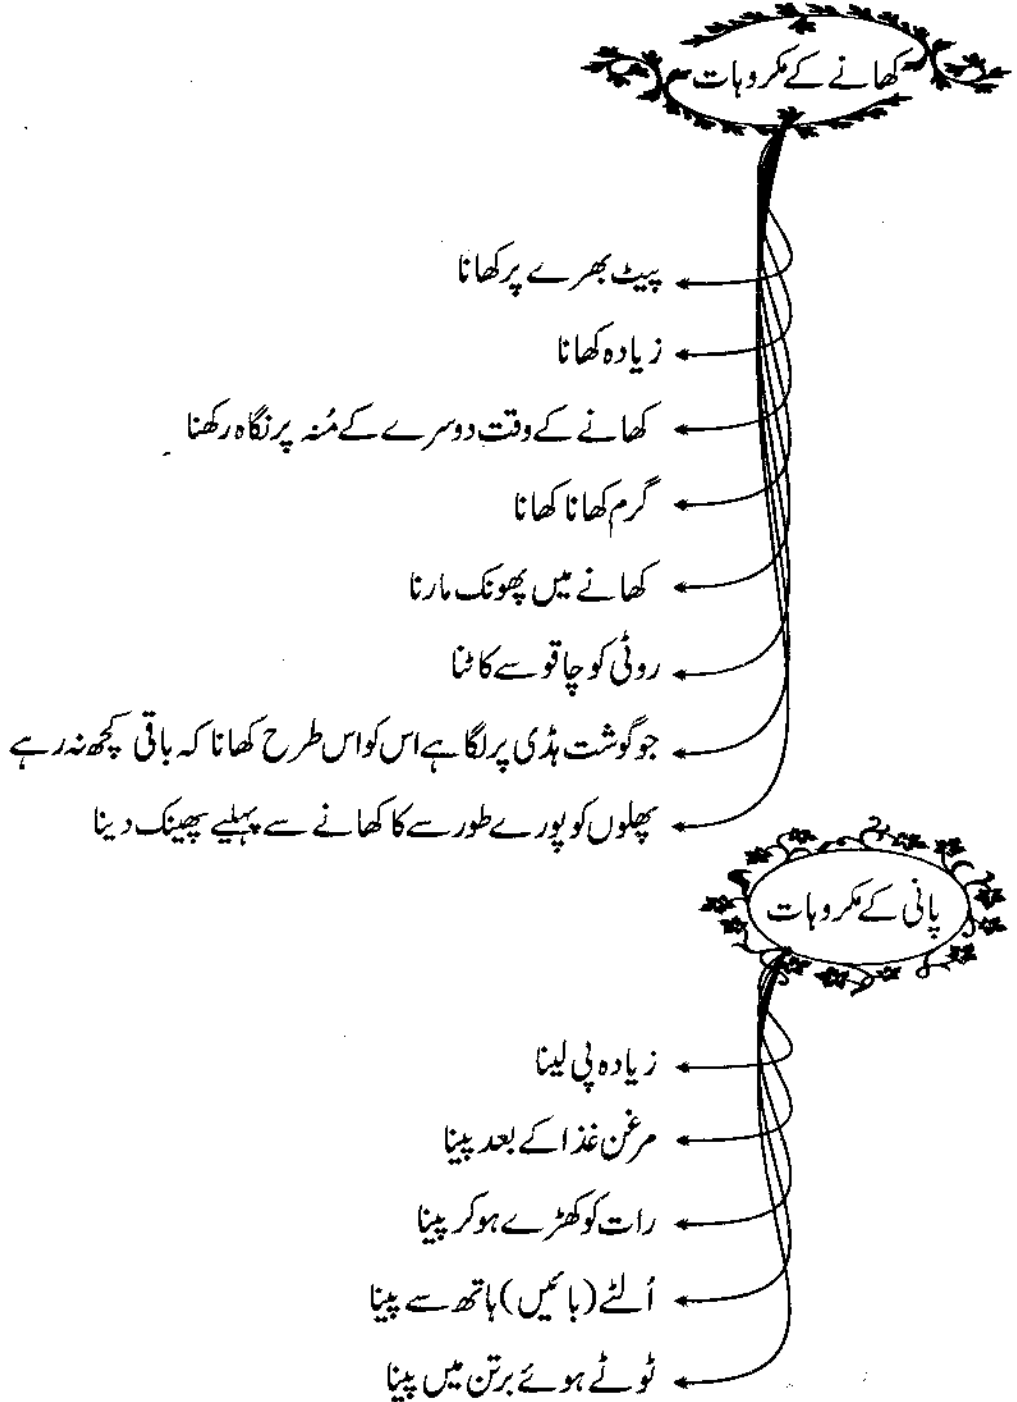 کھانے کے مکروہات
پیٹ بھرے پر کھانا
زیادہ کھانا
کھانے کے وقت دوسرے کے مُنہ پر نگاہ رکھنا
گرم کھانا کھانا
کھانے میں پھونک مارنا
روٹی کو چاقو سے کاٹنا
جو گوشت ہڈی پر لگا ہے اس کو اس طرح کھانا کہ باقی کچھ نہ رہے
پھلوں کو پورے طور سے کا کھانے سے پہلیے پھینک دینا
پانی کے مکروہات
زیادہ پی لینا
مرغن غذا کے بعد پینا
رات کو کھڑے ہو کر پینا
اُلٹے (بائیں) ہاتھ سے پینا
ٹوٹے ہوئے برتن میں پینا